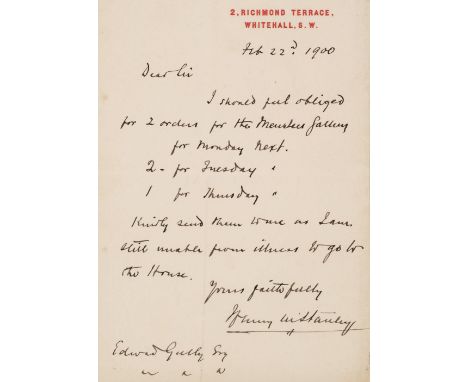 2, RICHMOND TERRACE,
WHITEHALL, S.W.
Feb 22d. 1900
Dear Sir
I should feel obliged
for 2 orders for the Members Gallery
for Monday next.
2 - for Tuesday "
1 for Thursday "
Kindly send them to me as I am
still unable from illness to go to
the House.
Yours faithfully
Henry M Stanley
Edward Gully Esq
" " "